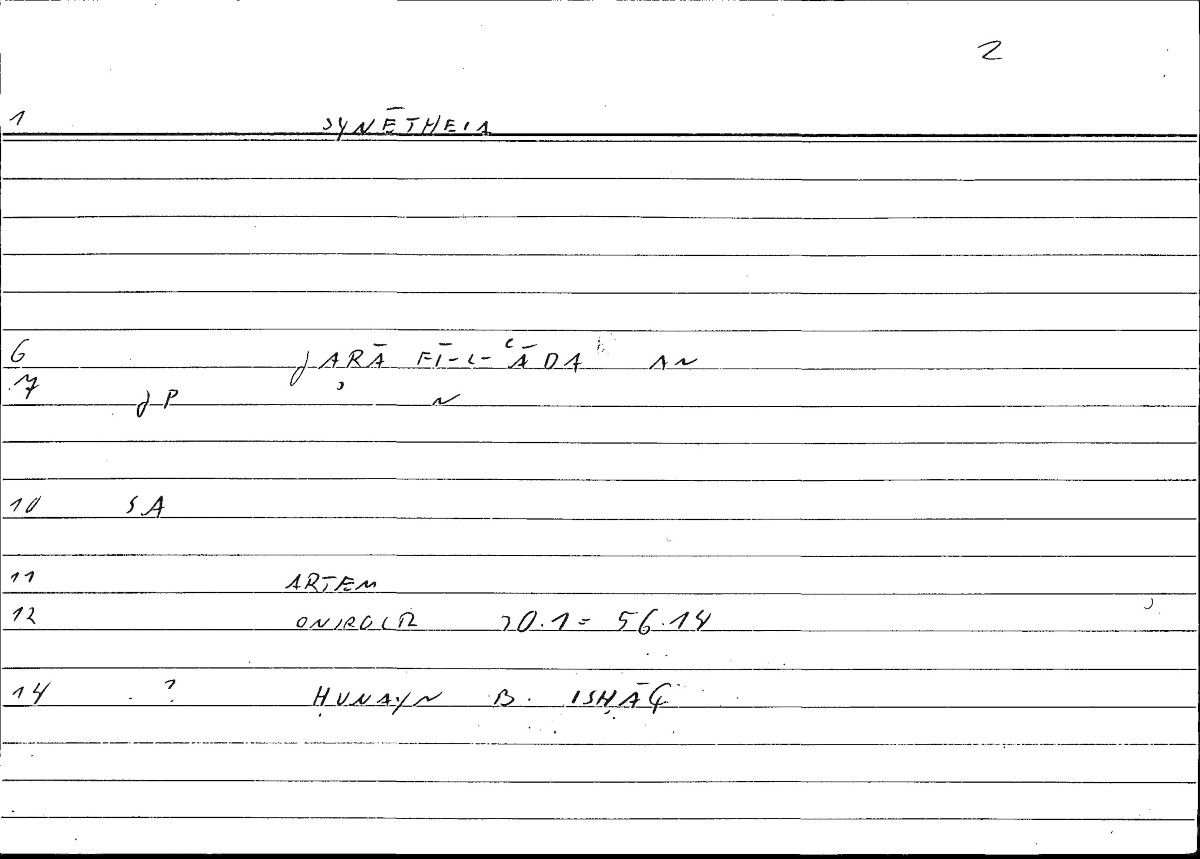 2
1 SYNĒTHEIA
6 ǦARĀ FĪ-L-ʿĀDA AN
7 ǦP N
10 SA
11 ARTEM
12 ONIROCR 20.1 = 56.14
14 ? ḤUNAYN B. ISḤĀQ